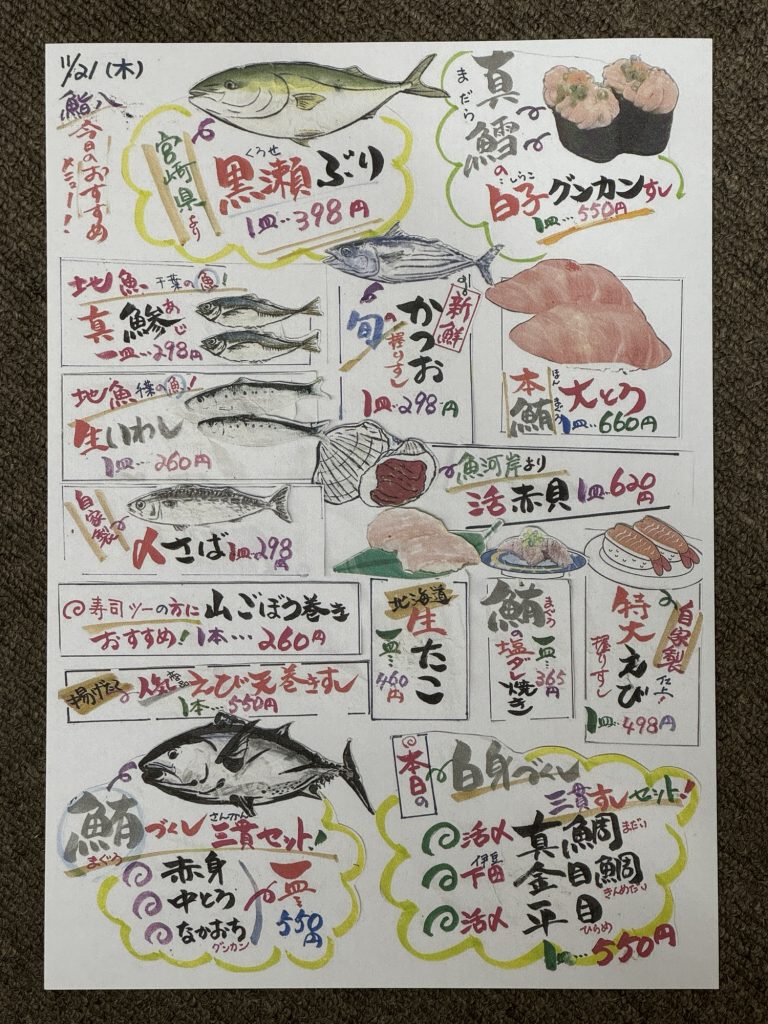 11/21(木)
鮨八
今日のおすすめ
メニュー!
宮崎県より
くろせ
黒瀬ぶり
1皿…398円
まだら
真鱈の
しらこ
白子グンカンすし
1皿…550円
地魚 千葉の魚!
あじ
真鯵
一皿…298円
新鮮
旬の握りすし
かつお
1皿…298円
ほんまぐろ
本鮪 大とろ
1皿…660円
地魚 千葉の魚!
生いわし
1皿…260円
魚河岸より
活赤貝 1皿…620円
自家製
〆さば 1皿…298円
寿司ツーの方に 山ごぼう巻き
おすすめ! 1本…260円
揚げたて 人気商品 えび天巻きすし
1本…550円
北海道
生たこ
一皿…460円
まぐろ
鮪の塩ダレ焼き
一皿…365円
自家製仕上!
特大えび
握りすし
1皿…498円
鮪づくし 三貫セット!
まぐろ
さんかん
赤身
中とろ
なかおち
グンカン
一皿
550円
本日の
白身づくし
三貫すしセット!
活〆 真鯛 まだい
伊豆
下田 金目鯛 きんめだい
活〆 平目 ひらめ
1皿…550円